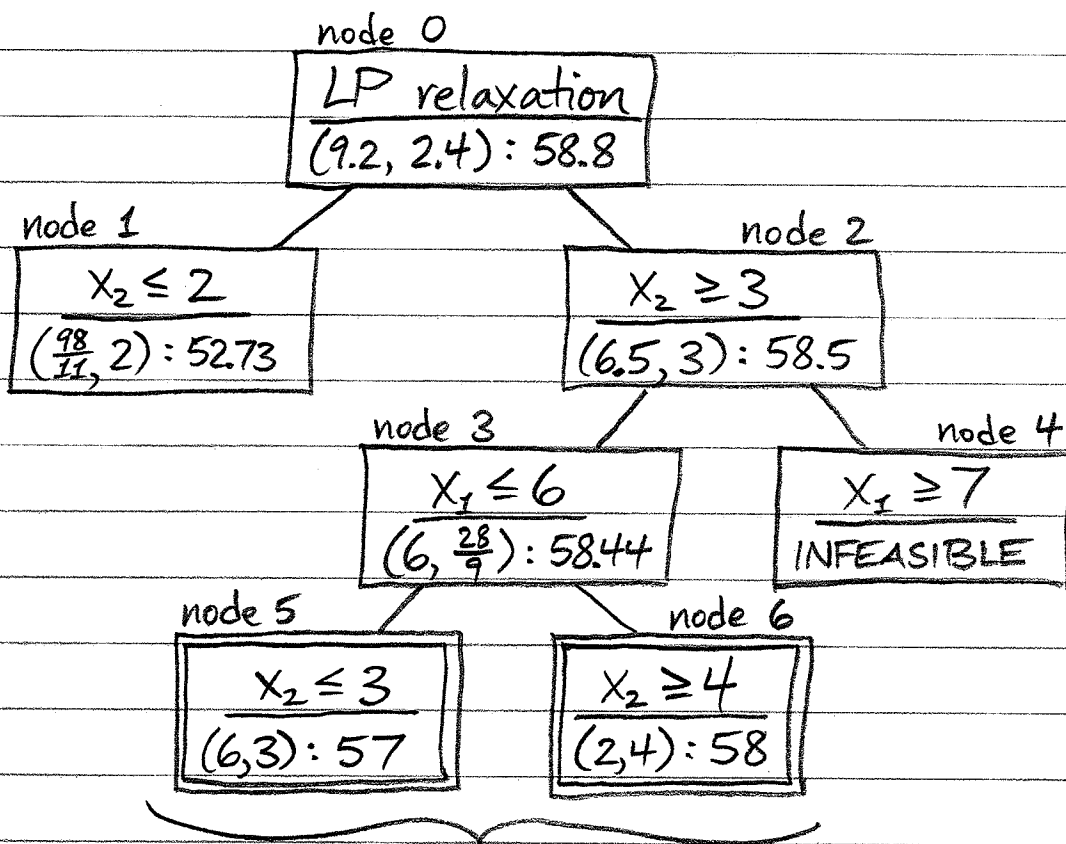 node 0
LP relaxation
(9.2, 2.4) : 58.8
node 1
X₂ ≤ 2
(98/11, 2) : 52.73
node 2
X₂ ≥ 3
(6.5, 3) : 58.5
node 3
X₁ ≤ 6
(6, 28/9) : 58.44
node 4
X₁ ≥ 7
INFEASIBLE
node 5
X₂ ≤ 3
(6,3) : 57
node 6
X₂ ≥ 4
(2,4) : 58